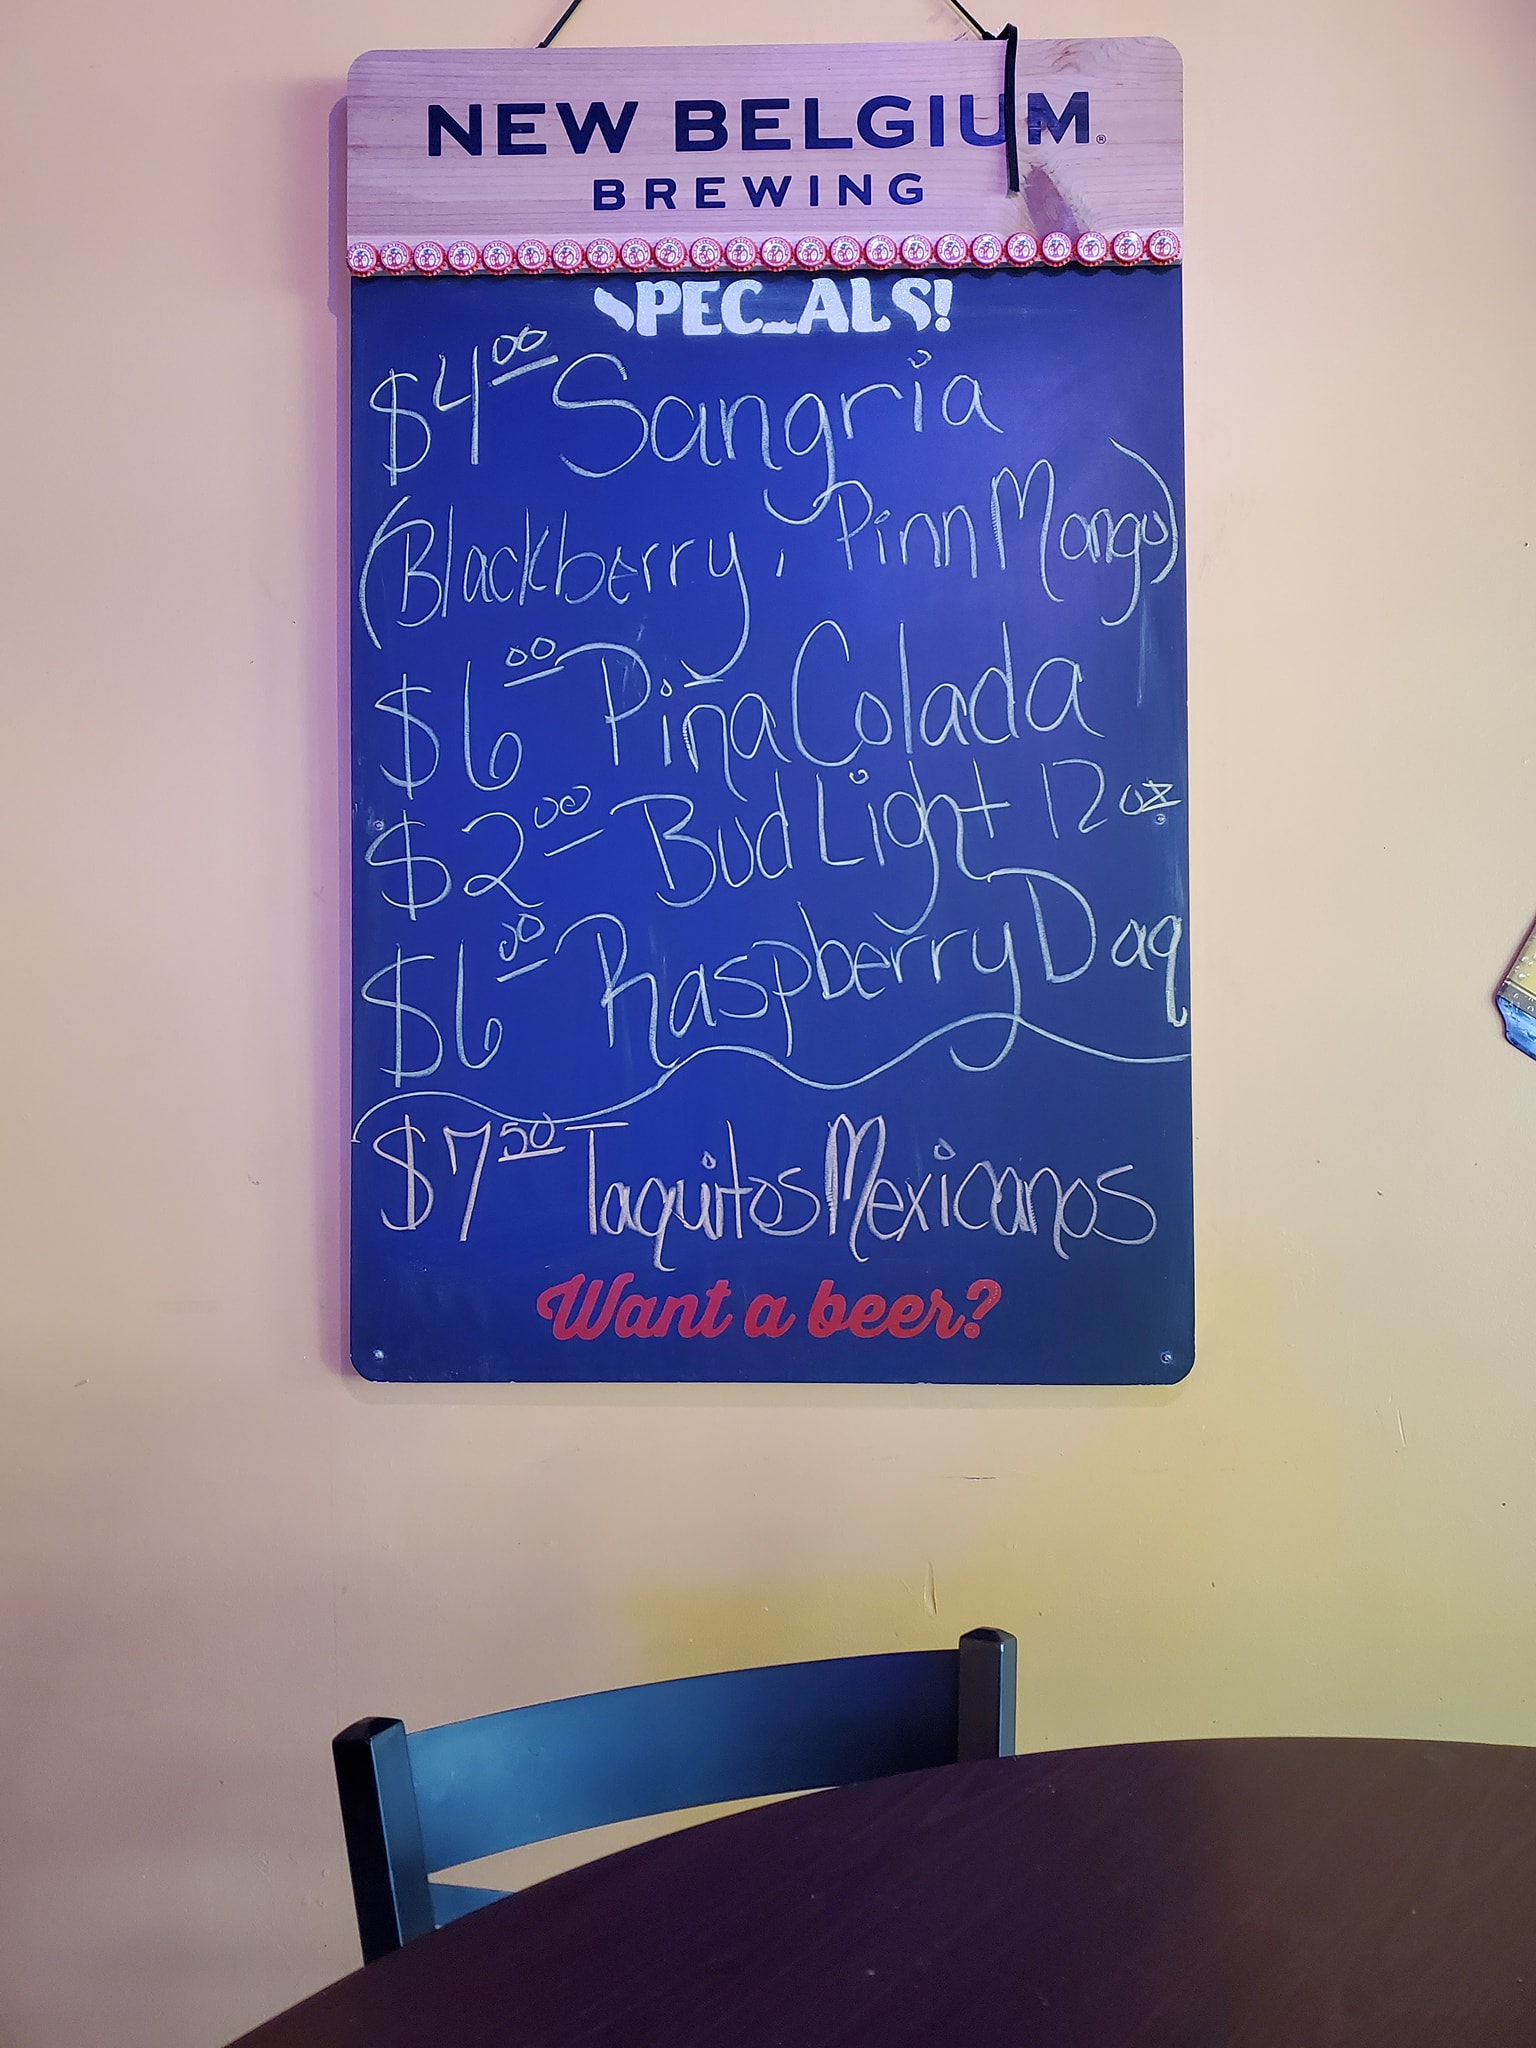 NEW BELGIUM®
BREWING
SPECIALS!
$4.00 Sangria
(Blackberry, Pinn Mango)
$6.00 Piña Colada
$2.00 Bud Light 12 oz
$6.00 Raspberry Daq
$7.50 Taquitos Mexicanos
Want a beer?